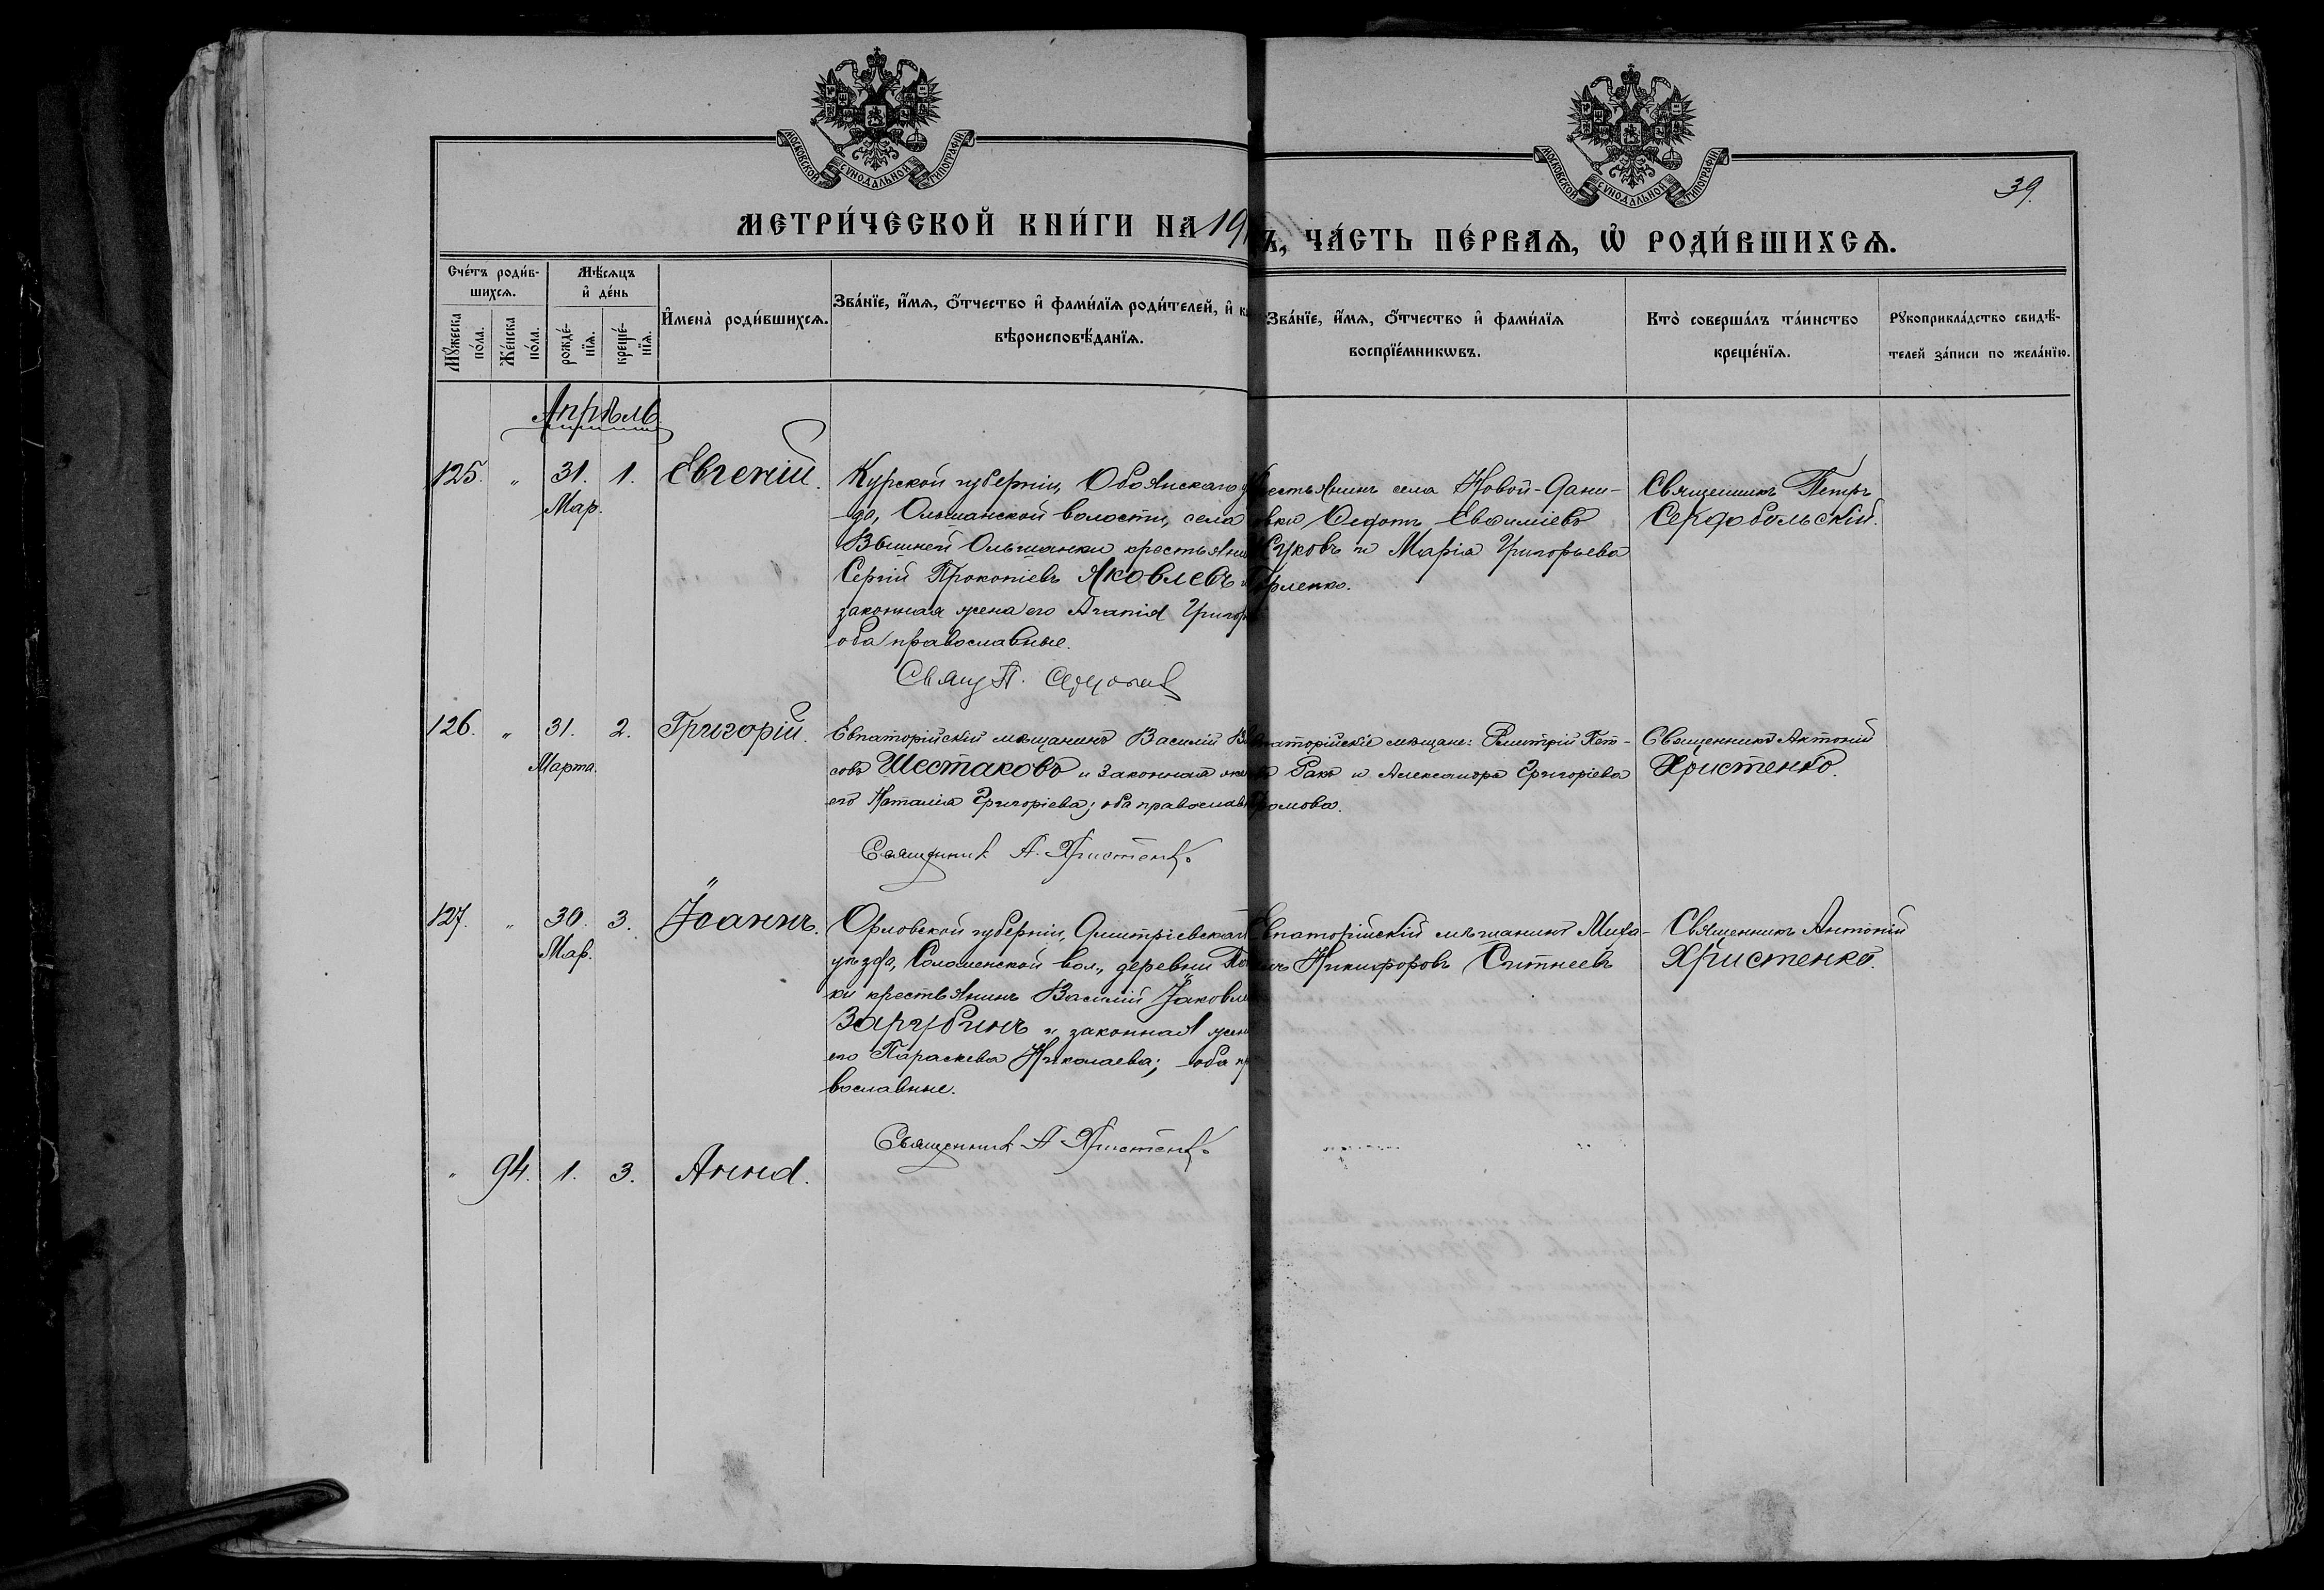 МОСКОВСКОЙ СѴНОДАЛЬНОЙ ТИПОГРАФІИ
МОСКОВСКОЙ СѴНОДАЛЬНОЙ ТИПОГРАФІИ
39.
МЕТРИ́ЧЕСКОЙ КНИ́ГИ НА 19
Ъ, ЧА́СТЬ ПЕ́РВАѦ, Ѡ҆ РОДИ́ВШИХСѦ.
Сче́тъ роди́в-
шихсѧ.
Мꙋ́жеска
по́ла.
Же́нска
по́ла.
Мѣ́сѧцъ
и҆ де́нь
рожде́-
нїѧ.
креще́-
нїѧ.
И҆мена̀ роди́вшихсѧ.
Зва́нїе, и҆́мѧ, ѻ҆́тчество и҆ фами́лїѧ роди́телей, и҆
вѣроисповѣ́данїѧ.
Зва́нїе, и҆́мѧ, ѻ҆́тчество и҆ фами́лїѧ
воспрїе́мникѡвъ.
Кто̀ соверша́лъ та́инство
креще́нїѧ.
Рꙋкоприкла́дство свидѣ́-
телей за́писи по жела́нїю.
Апрѣль
125. " 31. 1. Евгеній.
Мар.
Курской губерніи, Обоянскаго
да, Ольшанской волости, села
Вышней Ольшанки крестьяни
Сергій Прокопіевъ Яковлевъ
законная жена его Агапія Григор
оба православные.
Свящ П.
крестьянинъ села Новой-Дани-
овки Федотъ Евфиміевъ
Жуковъ и Марія Григорьева
Священникъ Петръ
Сердобольскій.
126. " 31. 2. Григорій.
Марта.
Евпаторійскій мѣщанинъ Василій
совъ Шестаковъ и законная жена
его Наталія Григоріева; оба православн
Священник А. Христенко
паторійскіе мѣщане: Димитрій Пет-
Рако и Александра Григоріева
Громова.
Священникъ Антоній
Христенко.
127. " 30. 3. Іоаннъ.
Мар.
Орловской губерніи, Димитріевскаго
уѣзда, Соломенской вол., деревни
ки крестьянинъ Василій Іаковле
Зарубинъ и законная жена
его Параскева Николаева; оба пр
вославные.
Священник А Христенко
Евпаторійскій мѣщанинъ Миха-
Никифоровъ Сытнеевъ
Священникъ Антоній
Христенко.
" 94. 1. 3. Анна.